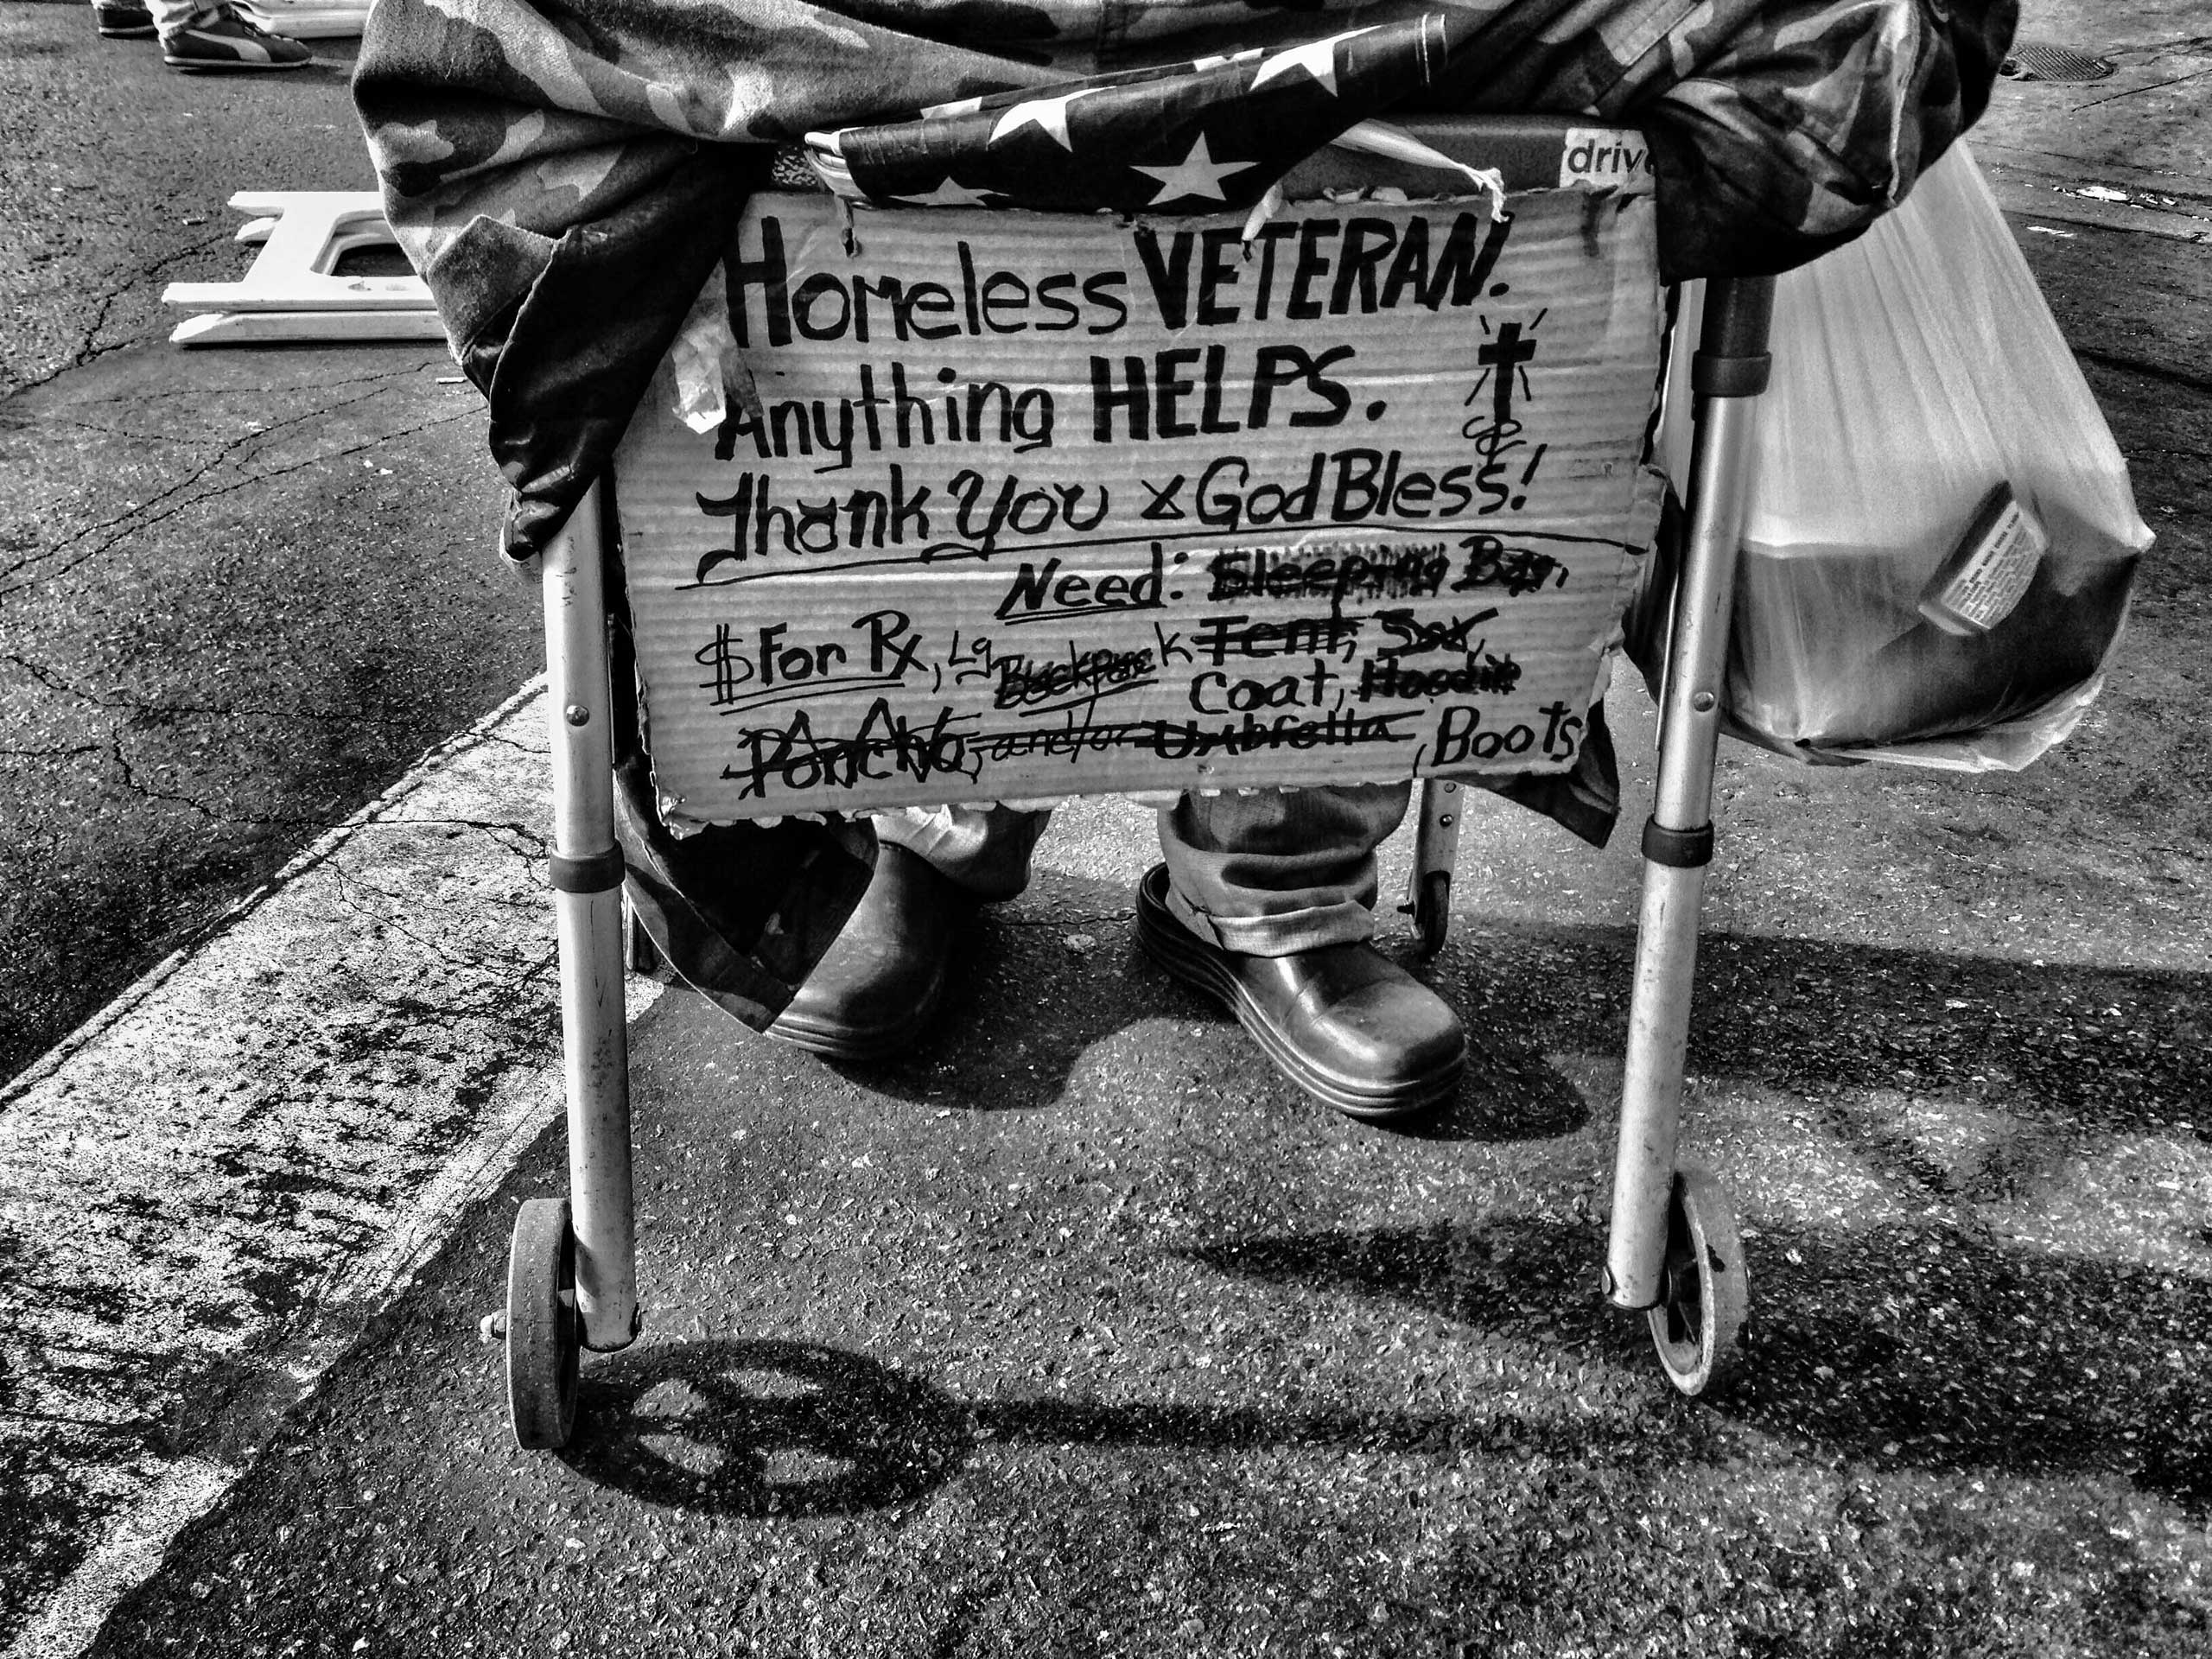 driv
Homeless VETERAN.
Anything HELPS.
Thank You & God Bless!
Need: Sleeping Bag,
$ For Rx, Lg Backpack Tent, Sox,
Coat, Hoodie
Poncho, and/or Umbrella, Boots